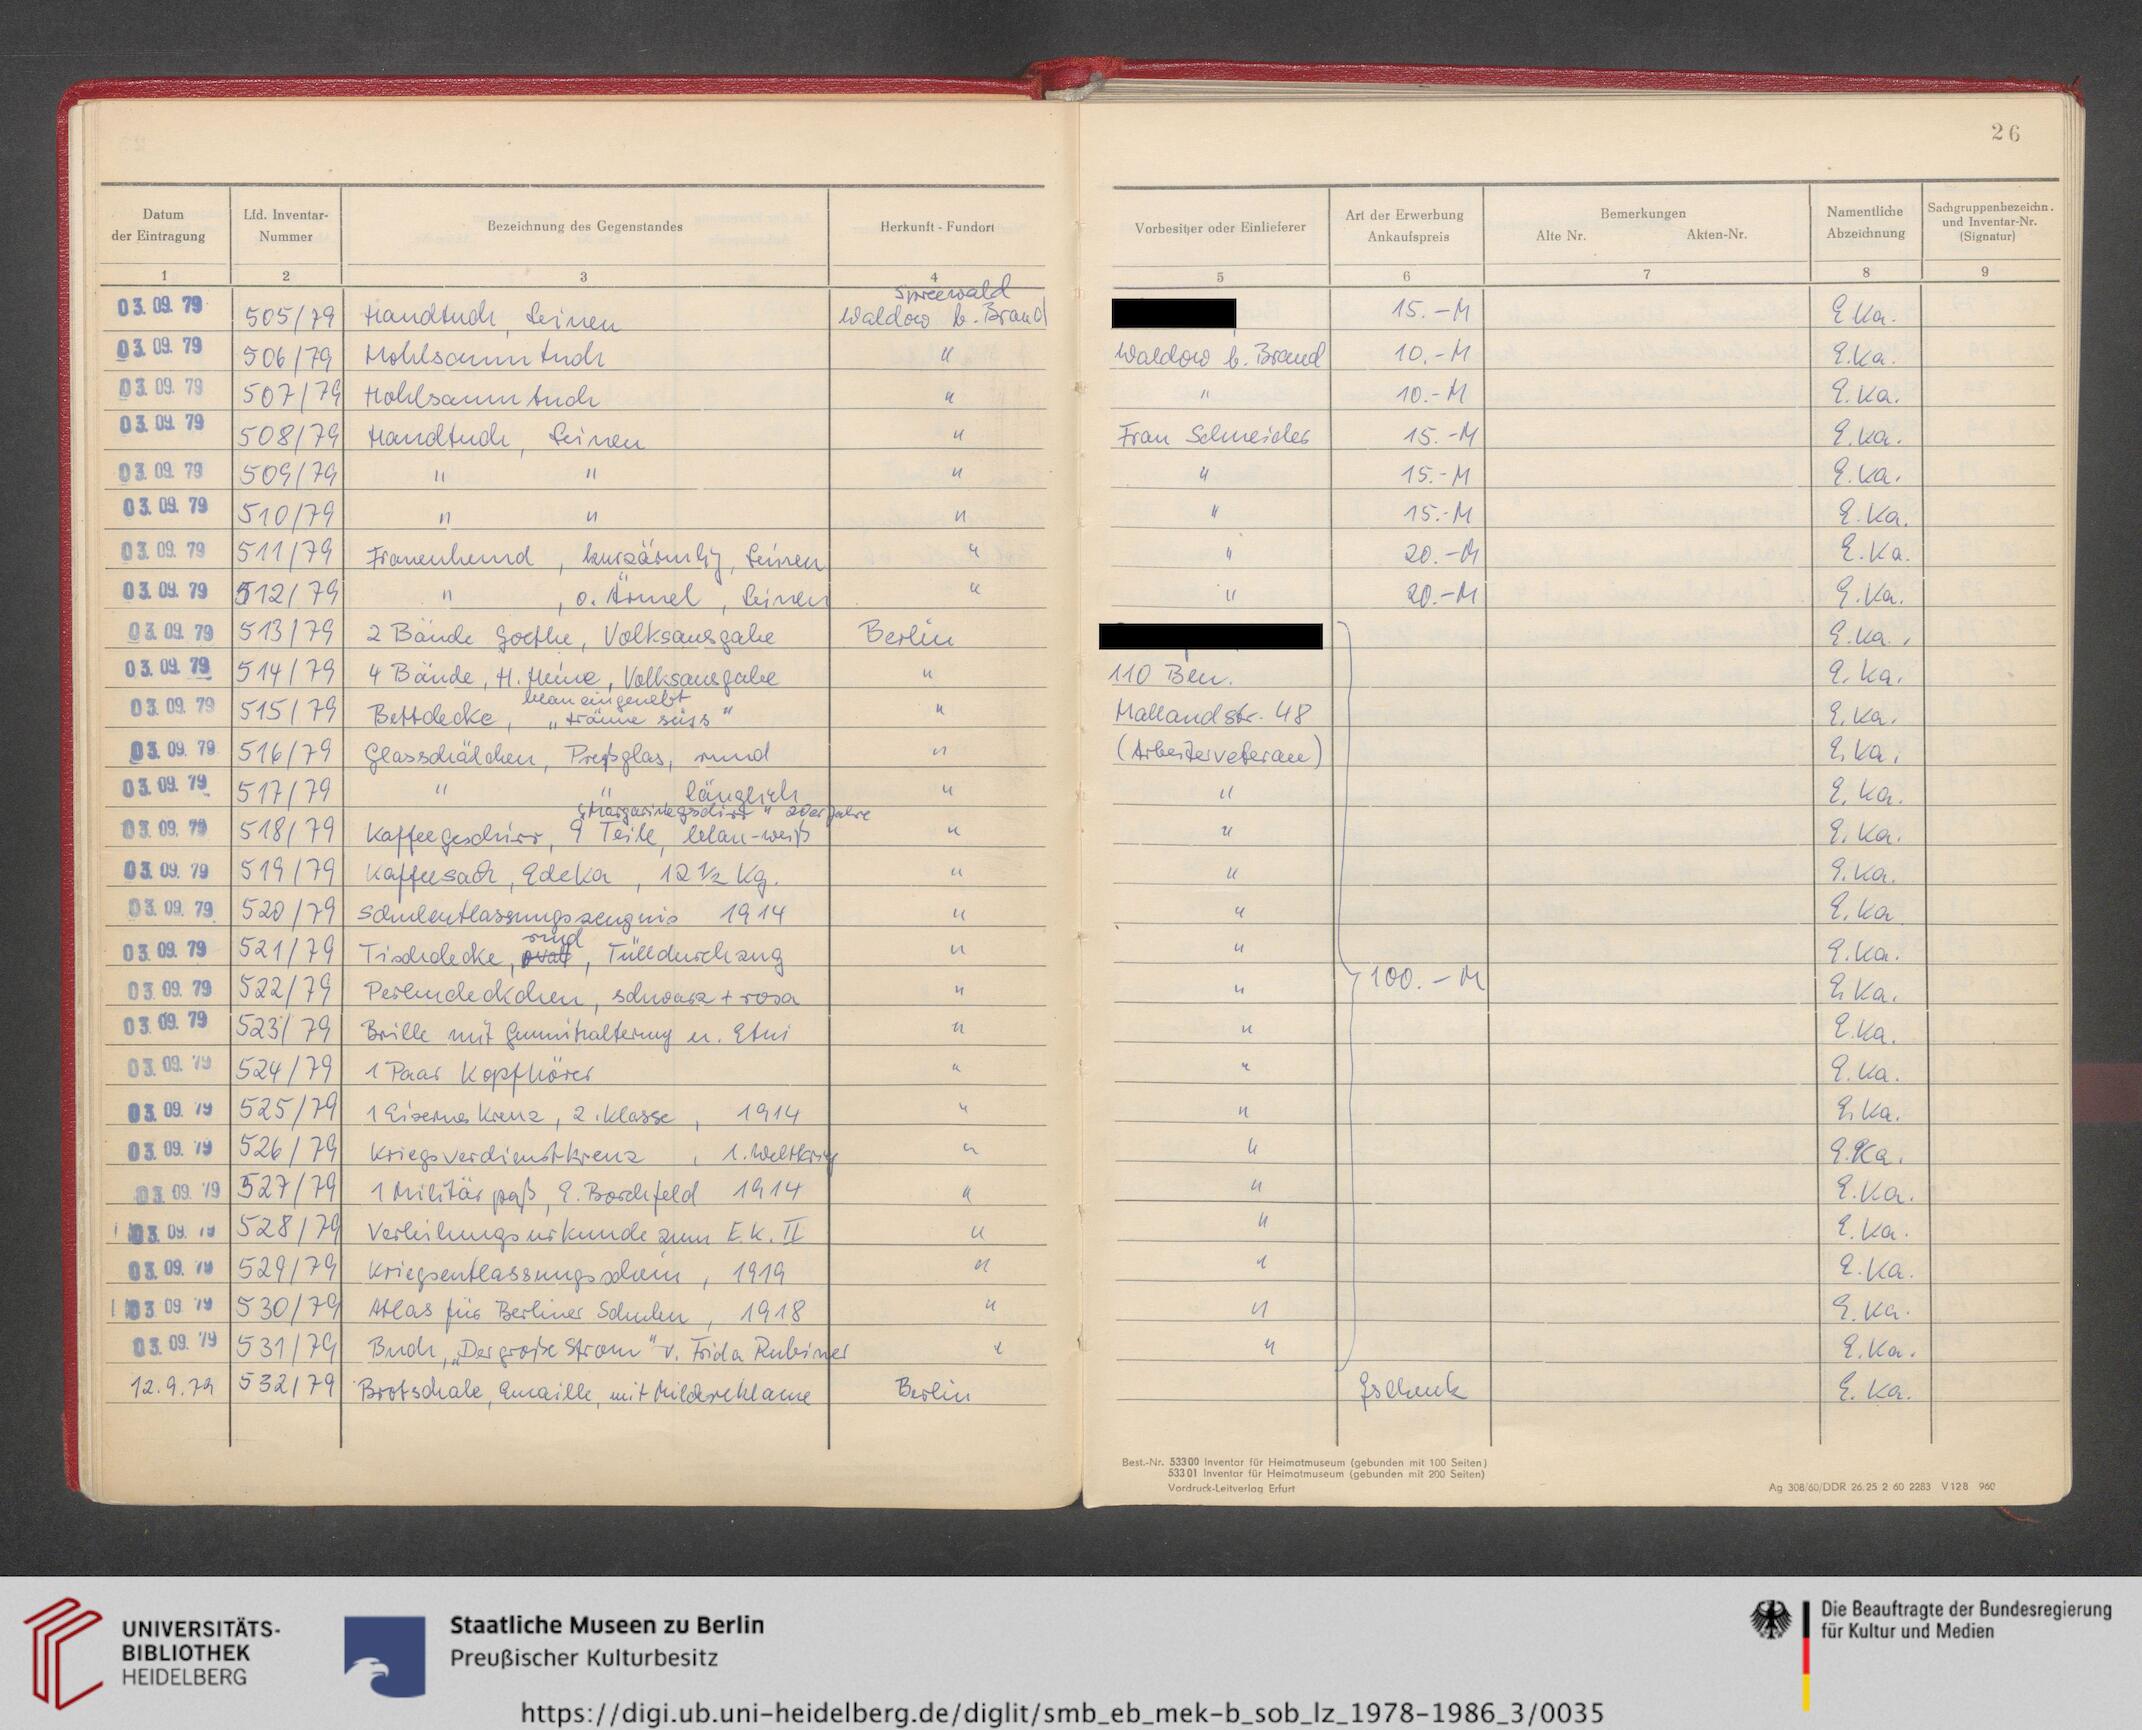 26
Datum der Eintragung | Lfd. Inventar-Nummer | Bezeichnung des Gegenstandes | Herkunft - Fundort | Vorbesitzer oder Einlieferer | Art der Erwerbung Ankaufspreis | Bemerkungen Alte Nr. Akten-Nr. | Namentliche Abzeichnung | Sachgruppenbezeichn. und Inventar-Nr. (Signatur)
1 | 2 | 3 | 4 | 5 | 6 | 7 | 8 | 9
03.09.79 | 505/79 | Handtuch, Leinen | Spreewald Waldow b. Brand | | 15.-M | | E.Ka.
03.09.79 | 506/79 | Hohlsaumtuch | " | Waldow b. Brand | 10.-M | | E.Ka.
03.09.79 | 507/79 | Hohlsaumtuch | " | " | 10.-M | | E.Ka.
03.09.79 | 508/79 | Handtuch, Leinen | " | Frau Schneider | 15.-M | | E.Ka.
03.09.79 | 509/79 | " " | " | " | 15.-M | | E.Ka.
03.09.79 | 510/79 | " " | " | " | 15.-M | | E.Ka.
03.09.79 | 511/79 | Frauenhemd, kurzärmlig, Leinen | " | " | 20.-M | | E.Ka.
03.09.79 | 512/79 | " , o. Ärmel, Leinen | " | " | 20.-M | | E.Ka.
03.09.79 | 513/79 | 2 Bände Goethe, Volksausgabe | Berlin | | | | E.Ka.
03.09.79 | 514/79 | 4 Bände, H. Heine, Volksausgabe | " | 110 Bln. | | | E.Ka.
03.09.79 | 515/79 | Bettdecke, blau eingewebt "Träume süss" | " | Mallandstr. 48 | | | E.Ka.
03.09.79 | 516/79 | Glasschälchen, Preßglas, rund | " | (Arbeiterveteran) | | | E.Ka.
03.09.79 | 517/79 | " " länglich | " | " | | | E.Ka.
03.09.79 | 518/79 | Kaffeegeschirr, 9 Teile, blau-weiß "Margarinegeschirr" 20er Jahre | " | " | | | E.Ka.
03.09.79 | 519/79 | Kaffeesack, Edeka, 12 1/2 Kg. | " | " | | | E.Ka.
03.09.79 | 520/79 | Schulentlassungszeugnis 1914 | " | " | | | E.Ka
03.09.79 | 521/79 | Tischdecke, oval rund, Tülldurchzug | " | " | | | E.Ka.
03.09.79 | 522/79 | Perlendeckchen, schwarz + rosa | " | " | 100.-M | | E.Ka.
03.09.79 | 523/79 | Brille mit Gummihalterung u. Etui | " | " | | | E.Ka.
03.09.79 | 524/79 | 1 Paar Kopfhörer | " | " | | | E.Ka.
03.09.79 | 525/79 | 1 Eisernes Kreuz, 2. Klasse, 1914 | " | " | | | E.Ka.
03.09.79 | 526/79 | Kriegsverdienstkreuz, 1. Weltkrieg | " | " | | | E.Ka.
03.09.79 | 527/79 | 1 Militärpaß, E. Borchfeld 1914 | " | " | | | E.Ka.
03.09.79 | 528/79 | Verleihungsurkunde zum E.K. II | " | " | | | E.Ka.
03.09.79 | 529/79 | Kriegsentlassungsschein, 1919 | " | " | | | E.Ka.
03.09.79 | 530/79 | Atlas für Berliner Schulen, 1918 | " | " | | | E.Ka.
03.09.79 | 531/79 | Buch, "Der große Strom" v. Frida Rubiner | " | " | | | E.Ka.
12.9.79 | 532/79 | Brotschale, Emaille, mit Milchreklame | Berlin | | Gschenk | | E.Ka.
Best.-Nr. 53300 Inventar für Heimatmuseum (gebunden mit 100 Seiten)
53301 Inventar für Heimatmuseum (gebunden mit 200 Seiten)
Vordruck-Leitverlag Erfurt
Ag 308/60/DDR 26.25 2 60 2283 V128 960
UNIVERSITÄTS-
BIBLIOTHEK
HEIDELBERG
Staatliche Museen zu Berlin
Preußischer Kulturbesitz
Die Beauftragte der Bundesregierung
für Kultur und Medien
https://digi.ub.uni-heidelberg.de/diglit/smb_eb_mek-b_sob_lz_1978-1986_3/0035